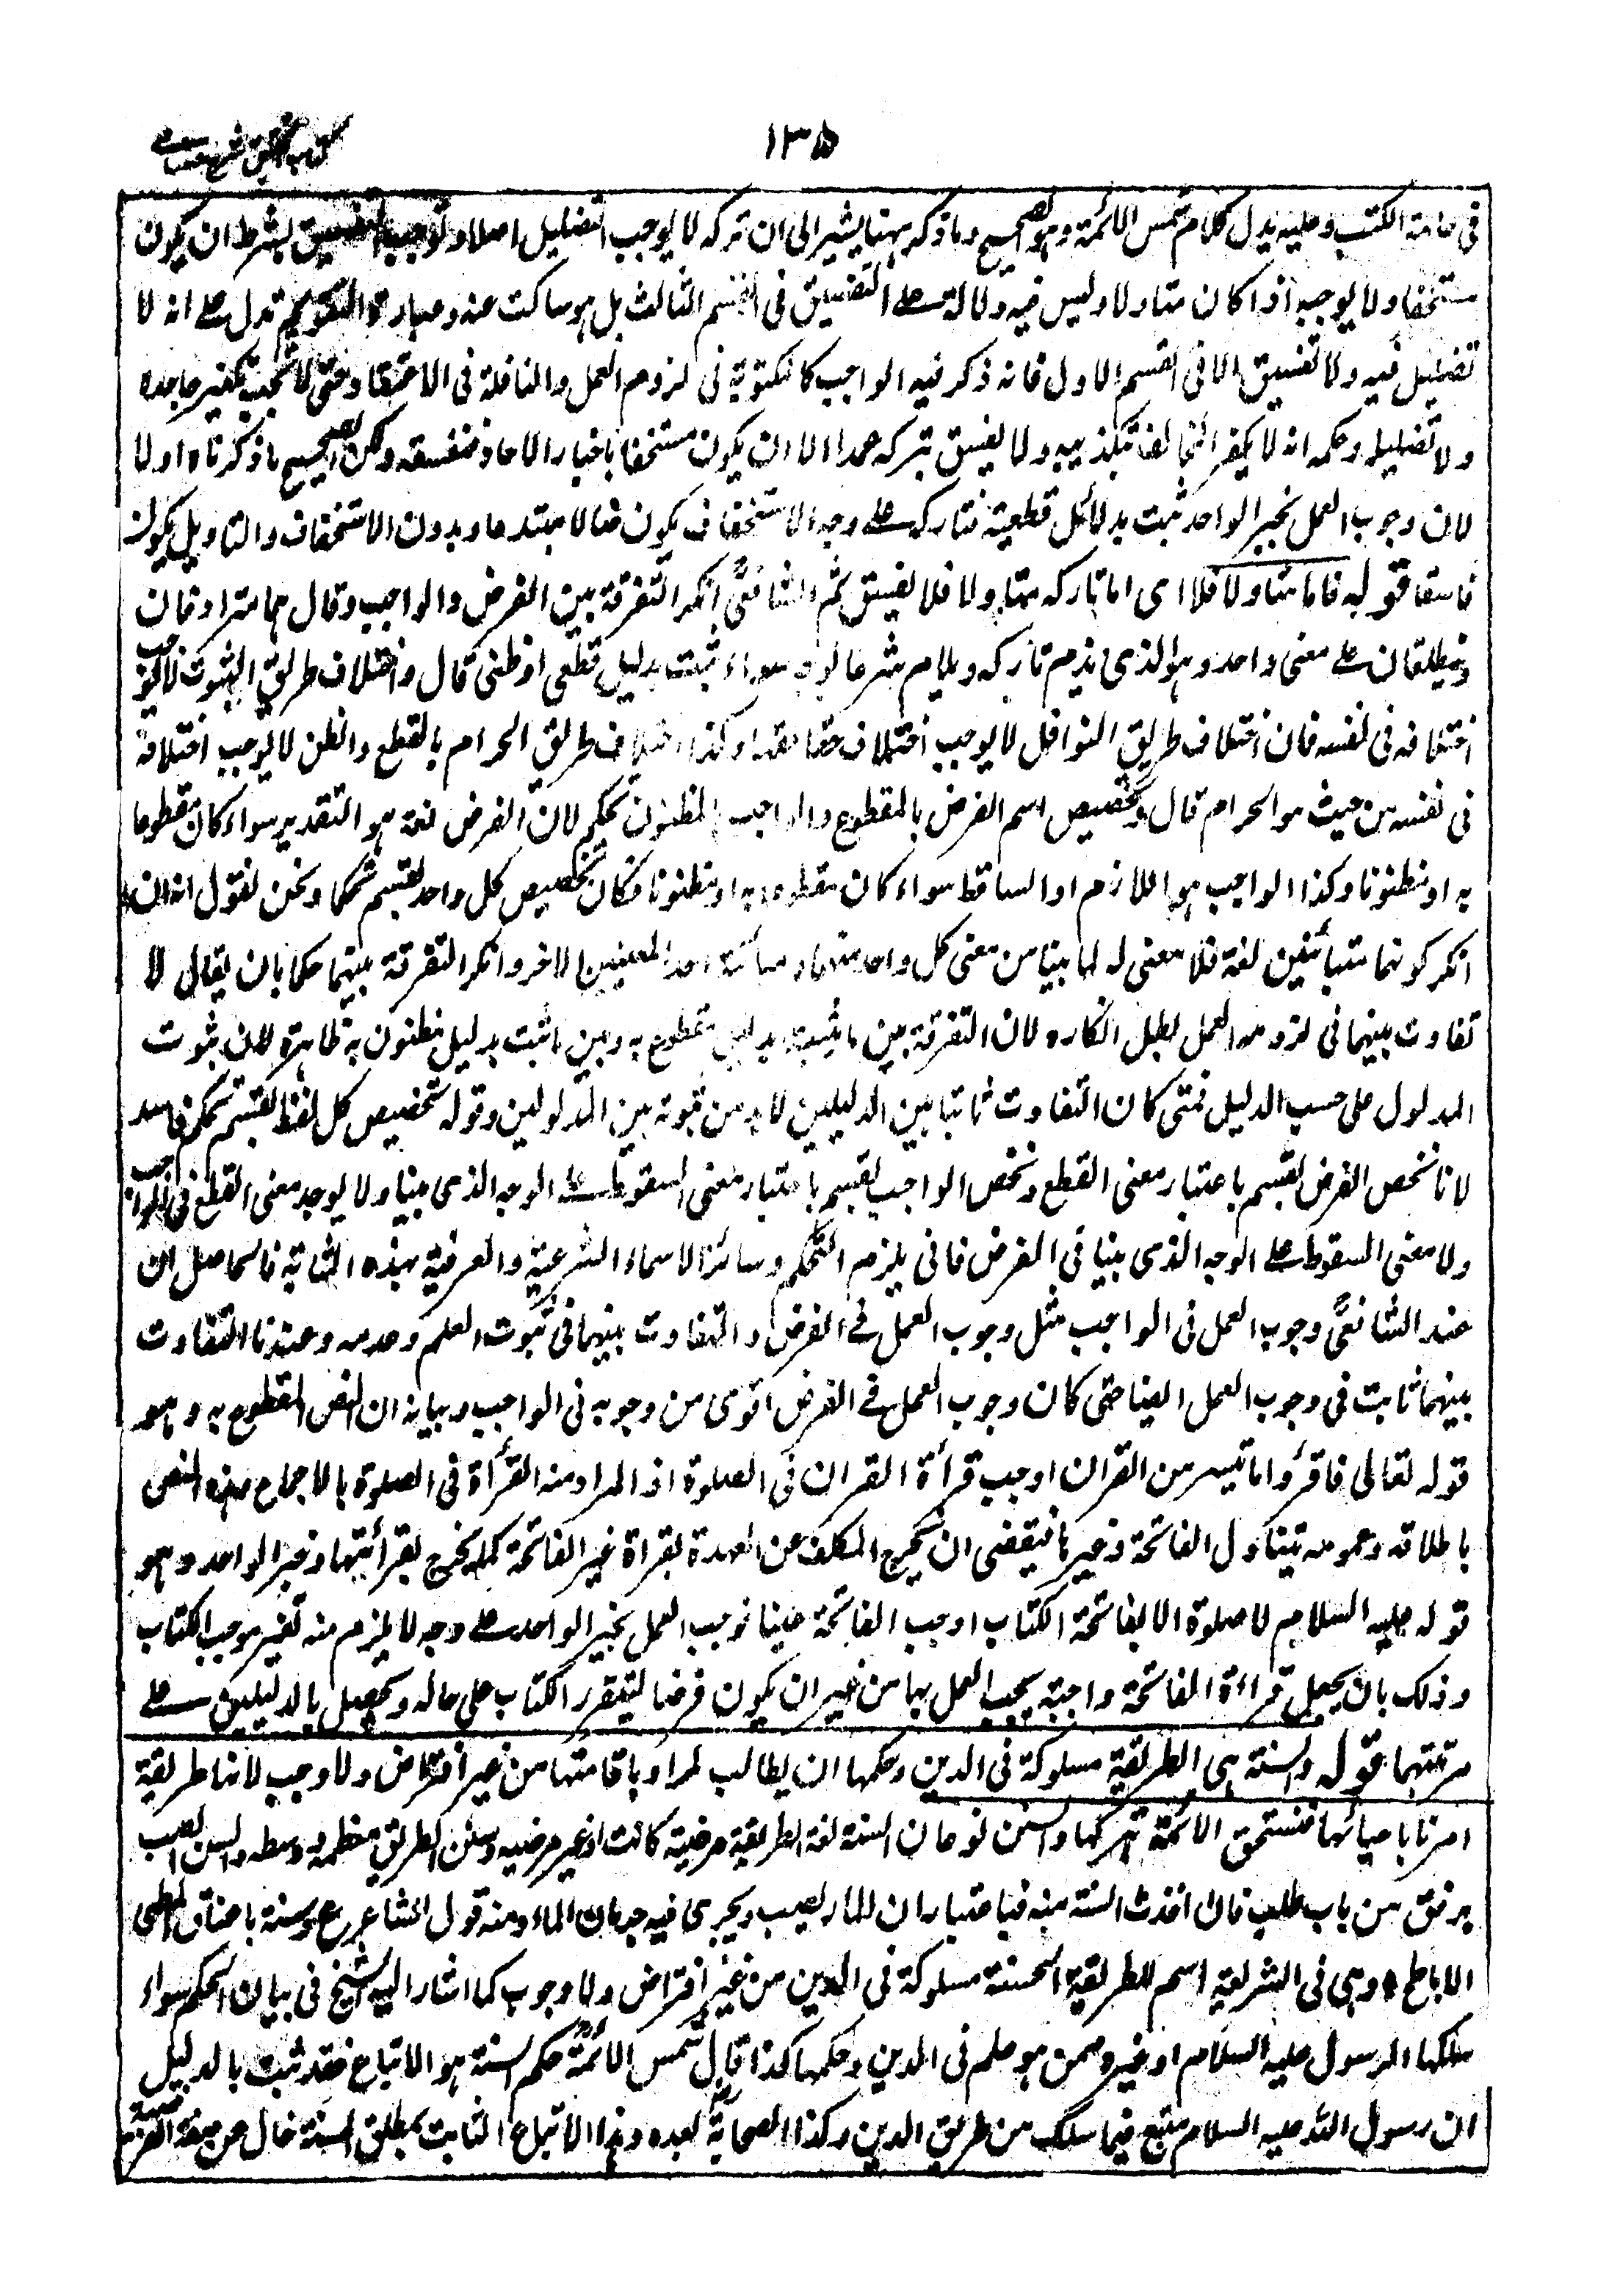 ١٣٥
كتاب التحقيق شرح حسامى
فى عامة الكتب وعليه يدل كلام شمس الائمة وهو الصحيح وما ذكر ههنا يشير الى ان تركه لا يوجب التضليل اصلا ويوجب التفسيق بشرط ان يكون
مستخفا ولا يوجبه اذا كان متاولا وليس فيه دلالة على التفسيق فى القسم الثالث بل هو ساكت عنه وعبارة التقويم تدل على انه لا
تضليل فيه ولا تفسيق الا فى القسم الاول فانه ذكر فيه الواجب كالمكتوبة فى لزوم العمل والنافلة فى الاعتقاد حتى لا يجب تكفير جاحده
ولا تضليله وحكمه انه لا يكفر المخالف بتكذيبه ولا يفسق بتركه عمدا الا ان يكون مستخفا باخبار الاحاد فنفسقه ولكن الصحيح ما ذكرناه اولا
لان وجوب العمل بخبر الواحد ثبت بدلائل قطعية فتاركه على وجه الاستخفاف يكون ضالا مبتدعا وبدون الاستخفاف والتاويل يكون
فاسقا قوله فاما متاولا فلا اى اما تاركه متاولا فلا يفسق ثم الشافعىؒ انكر التفرقة بين الفرض والواجب وقال هما مترادفان
ويطلقان على معنى واحد وهو الذى يذم تاركه ويلام شرعا بوجه سواء ثبت بدليل قطعى او ظنى قال واختلاف طريق الثبوت لا يوجب
اختلافه فى نفسه فان اختلاف طريق النوافل لا يوجب اختلاف حقائقها وكذا اختلاف طريق الحرام بالقطع والظن لا يوجب اختلافه
فى نفسه من حيث هو الحرام قال وتخصيص اسم الفرض بالمقطوع والواجب بالمظنون تحكم لان الفرض لغة هو التقدير سواء كان مقطوعا
به او مظنونا وكذا الواجب هو اللازم او الساقط سواء كان مقطوعا به او مظنونا فكان تخصيص كل واحد بقسم تحكما ونحن نقول انه ان
انكر كونهما متبائنين لغة فلا معنى له لما بينا من معنى كل واحد منهما ومبائنة احد المعنيين الاخر وانكر التفرقة بينهما حكما بان يقال لا
تفاوت بينهما فى لزوم العمل بطل انكاره لان التفرقة بين ما يثبت بدليل مقطوع به وبين ما ثبت بدليل مظنون به ظاهرة لان ثبوت
المدلول على حسب الدليل فمتى كان التفاوت ثابتا بين الدليلين لا بد من ثبوته بين المدلولين وقوله تخصيص كل لفظ بقسم تحكم فاسد
لانا نخص الفرض بقسم باعتبار معنى القطع ونخص الواجب بقسم باعتبار معنى السقوط على الوجه الذى بينا ولا يوجد معنى القطع فى الواجب
ولا معنى السقوط على الوجه الذى بينا فى الفرض فانى يلزم التحكم وسائر الاسماء الشرعية والعرفية بهذه المثابة فالحاصل ان
عند الشافعىؒ وجوب العمل فى الواجب مثل وجوب العمل فى الفرض والتفاوت بينهما فى ثبوت العلم وعدمه وعندنا التفاوت
بينهما ثابت فى وجوب العمل ايضا حتى كان وجوب العمل فى الفرض اقوى من وجوبه فى الواجب وبيانه ان النص المقطوع به وهو
قوله تعالى فاقرؤا ما تيسر من القران اوجب قرأة القران فى الصلوة اذ المراد منه القرأة فى الصلوة بالاجماع وهذه النص
باطلاقه وعمومه يتناول الفاتحة وغيرها فيقضى ان يخرج المكلف عن العهدة بقراة غير الفاتحة كما يخرج بقرأتها وخبر الواحد وهو
قوله عليه السلام لا صلوة الا بفاتحة الكتاب اوجب الفاتحة عينا فوجب العمل بخبر الواحد على وجه لا يلزم منه تغير موجب الكتاب
وذلك بان يجعل قراءة الفاتحة واجبة يجب العمل بها من غير ان يكون فرضا ليتقرر الكتاب على حاله ويحصل بالدليلين على
مرتبتهما قوله والسنة هى الطريقة مسلوكة فى الدين وحكمها ان يطالب المرا وباقامتها من غير افتراض ولا وجب لانها طريقة
امرنا باحيائها فنستحق الائمة بتركها والسنن نوعان السنة لغة الطريقة مرضية كانت او غير مرضيه وسنن الطريق معظمه ووسطه والسن الصب
برفق من باب طلب فان اخذت السنة منه فباعتبار ان المار يصب ويجرى فيه جريان الماء ومنه قول الشاعر ع وسنة باعناق المطى
الاباطح ٭ وهى فى الشريعة اسم للطريقة الحسنة مسلوكة فى الدين من غير افتراض ولا وجوب كما اشار اليه الشيخ فى بيان الحكم سواء
سلكها الرسول عليه السلام او غيره ممن هو علم فى الدين وحكمها كذا قال شمس الائمةؒ حكم السنة هو الاتباع فقد ثبت بالدليل
ان رسول الله عليه السلام متبع فيما سلك من طريق الدين وكذا الصحابةؓ بعده وهذا الاتباع الثابت بمطلق السنة خال عن صفة الفرضية